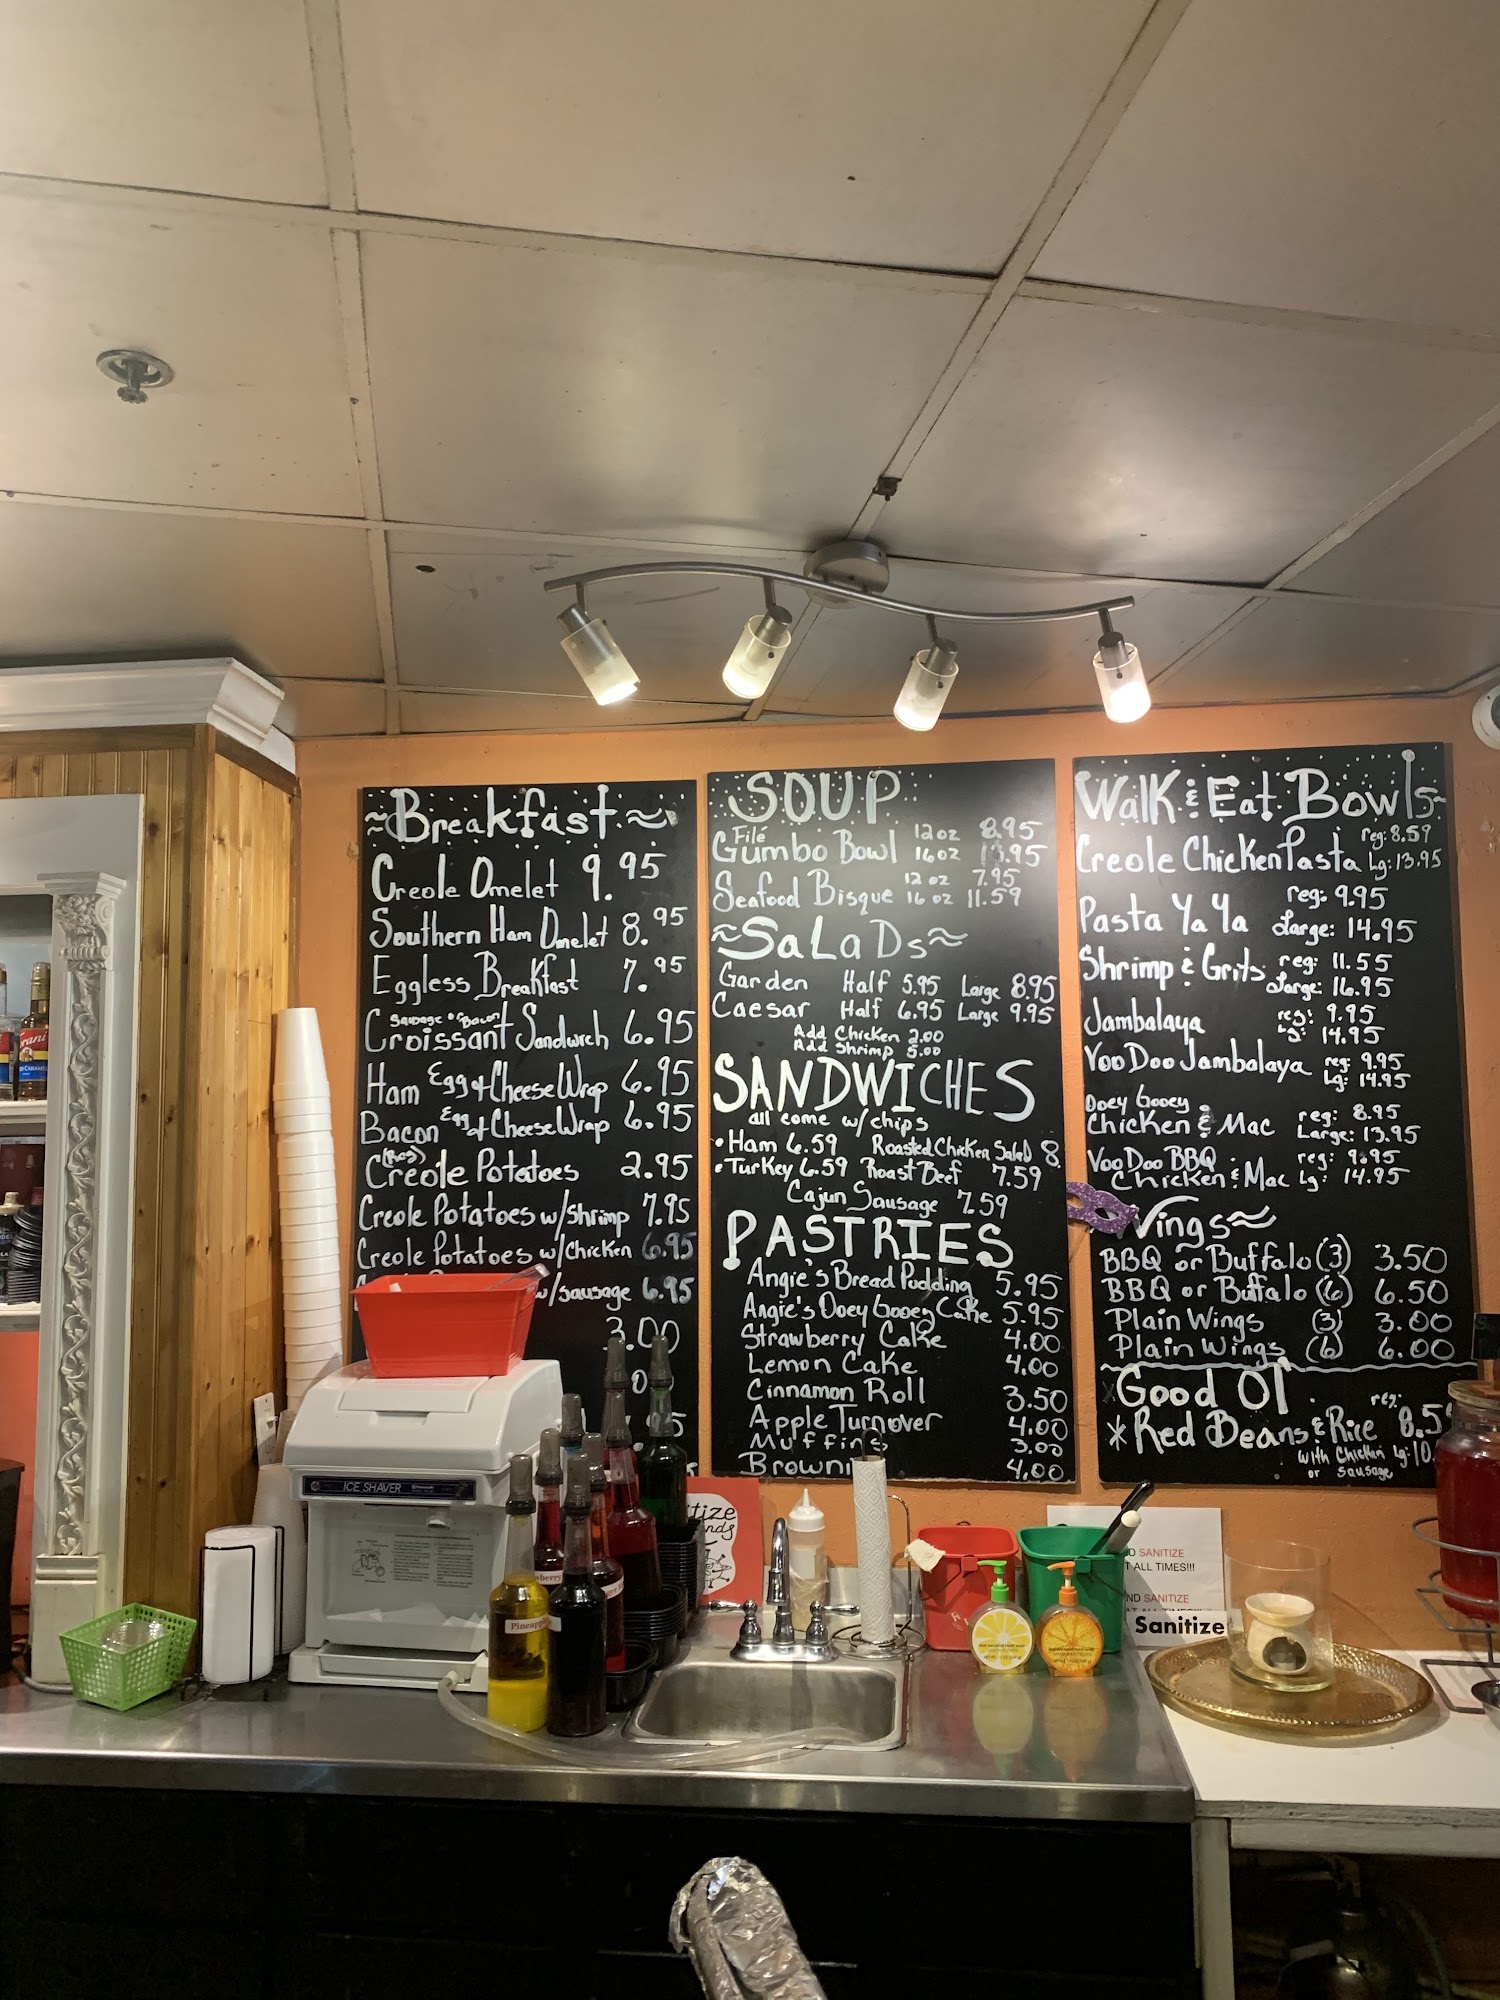 ≈Breakfast≈
Creole Omelet 9.95
Southern Ham Omelet 8.95
Eggless Breakfast 7.95
Sausage or Bacon
Croissant Sandwich 6.95
Ham Egg & Cheese Wrap 6.95
Bacon Egg & Cheese Wrap 6.95
(Reg)
Creole Potatoes 2.95
Creole Potatoes w/Shrimp 7.95
Creole Potatoes w/Chicken 6.95
w/sausage 6.95
3.00
SOUP
Filé
Gumbo Bowl 12oz 8.95
16oz 13.95
Seafood Bisque 12 oz 7.95
16 oz 11.59
≈SaLaDs≈
Garden Half 5.95 Large 8.95
Caesar Half 6.95 Large 9.95
Add Chicken 2.00
Add Shrimp 5.00
SANDWICHES
all come w/chips
•Ham 6.59 Roasted Chicken Salad 8.
•Turkey 6.59 Roast Beef 7.59
Cajun Sausage 7.59
PASTRIES
Angie's Bread Pudding 5.95
Angie's Ooey Gooey Cake 5.95
Strawberry Cake 4.00
Lemon Cake 4.00
Cinnamon Roll 3.50
Apple Turnover 4.00
Muffins 3.00
Browni 4.00
Walk & Eat Bowls
Creole Chicken Pasta reg: 8.59
Lg: 13.95
Pasta YaYa reg: 9.95
Large: 14.95
Shrimp & Grits reg: 11.55
Large: 16.95
Jambalaya reg: 9.95
Lg: 14.95
VooDoo Jambalaya reg: 9.95
Lg: 14.95
Ooey Gooey
Chicken & Mac reg: 8.95
Large: 13.95
VooDoo BBQ reg: 9.95
Chicken & Mac Lg: 14.95
Wings≈
BBQ or Buffalo (3) 3.50
BBQ or Buffalo (6) 6.50
Plain Wings (3) 3.00
Plain Wings (6) 6.00
Good Ol
*Red Beans & Rice reg: 8.5
with Chicken Lg: 10.
or Sausage
ICE SHAVER
Pineapple
SANITIZE
ALL TIMES!!!
SANITIZE
Sanitize